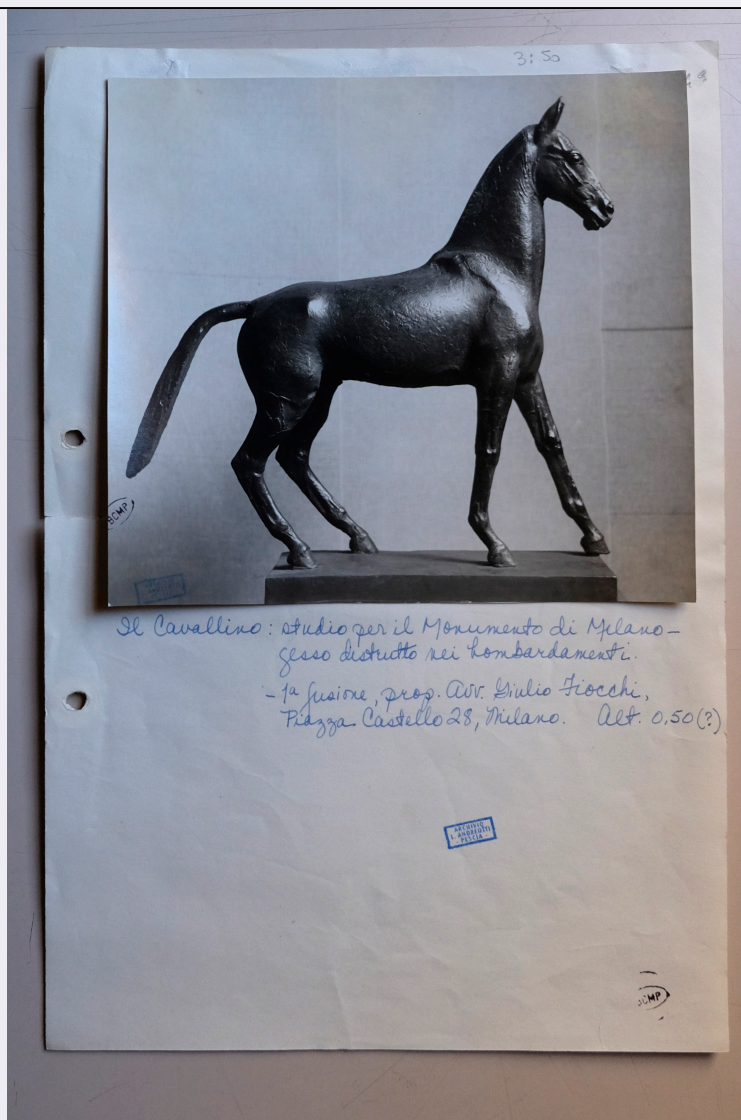 3:50
BCMP
Il Cavallino: studio per il Monumento di Milano –
gesso distrutto nei bombardamenti.
– 1a fusione, prop. Avv. Giulio Fiocchi,
Piazza Castello 28, Milano. Alt. 0,50(?)
ARCHIVIO
L. ANDREOTTI
PESCIA
CMP